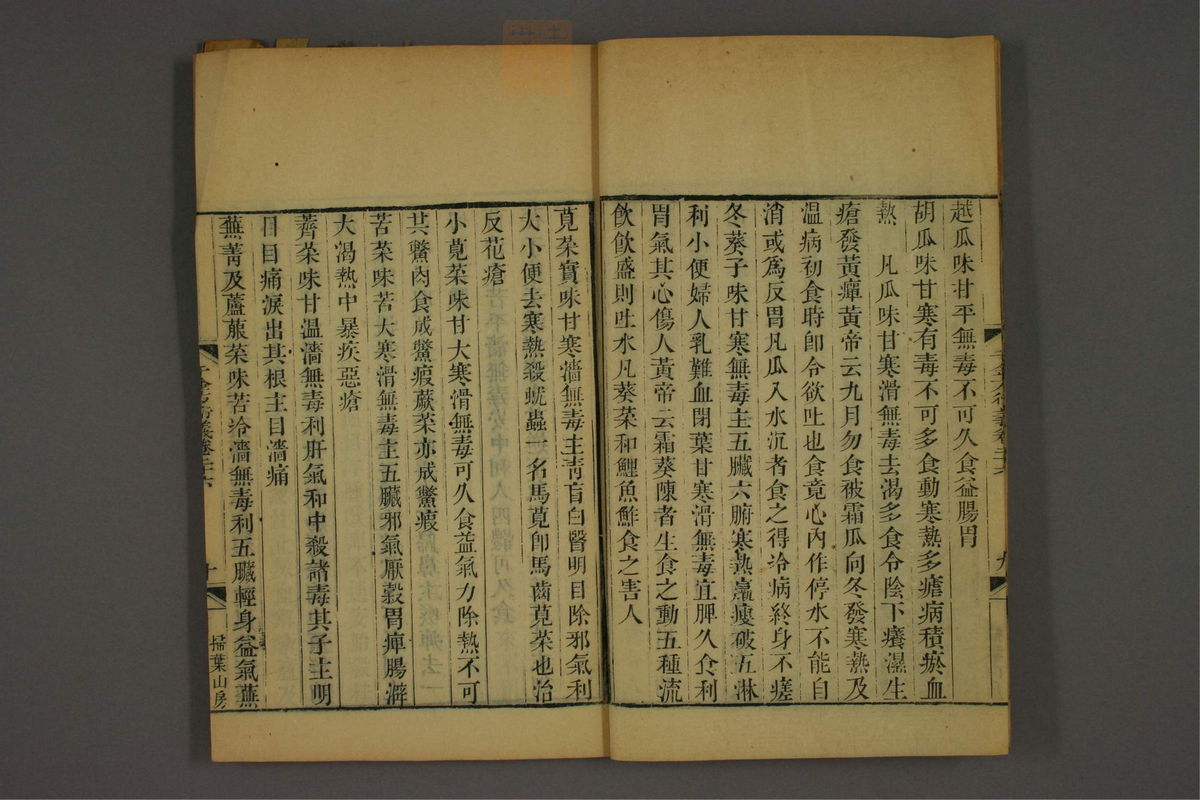 越瓜味甘平無毒不可久食益腸胃
胡瓜味甘寒有毒不可多食動寒熱多瘧病積瘀血
熱　凡瓜味甘寒滑無毒去渴多食令陰下癢濕生
瘡發黃癉黃帝云九月勿食被霜瓜向冬發寒熱及
温病初食時卽令欲吐也食竟心內作停水不能自
消或爲反胃凡瓜入水沉者食之得冷病終身不瘥
冬葵子味甘寒無毒主五臟六腑寒熱羸瘦破五淋
利小便婦人乳難血閉葉甘寒滑無毒宜脾久食利
胃氣其心傷人黃帝云霜葵陳者生食之動五種流
飮飮盛則吐水凡葵菜和鯉魚鮓食之害人
莧菜實味甘寒濇無毒主青盲白翳明目除邪氣利
大小便去寒熱殺蚘蟲一名馬莧卽馬齒莧菜也治
反花瘡
小莧菜味甘大寒滑無毒可久食益氣力除熱不可
共鱉肉食成鱉瘕蕨菜亦成鱉瘕
苦菜味苦大寒滑無毒主五臟邪氣厭穀胃痺腸澼
大渴熱中暴疾惡瘡
薺菜味甘温濇無毒利肝氣和中殺諸毒其子主明
目目痛淚出其根主目濇痛
蕪菁及蘆菔菜味苦冷濇無毒利五臟輕身益氣蕪
千金方衍義卷二十六
十
掃葉山房